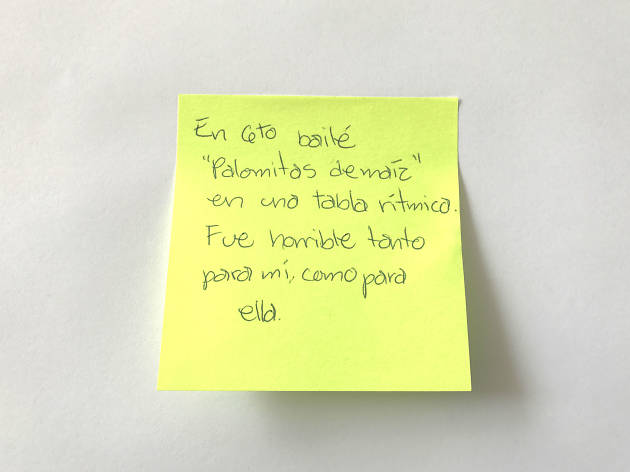 En 6to bailé
"Palomitas de maíz"
en una tabla rítmica.
Fue horrible tanto
para mí, como para
ella.